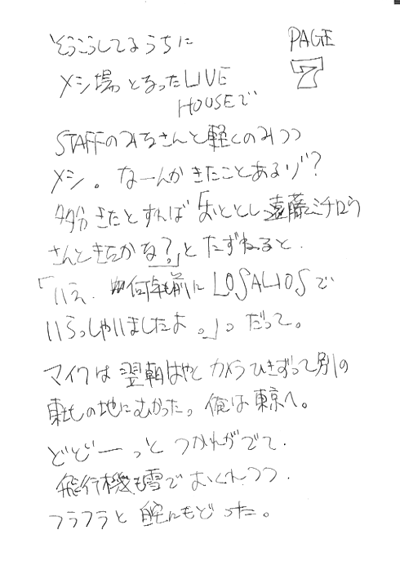 そうこうしてるうちに
PAGE
7
メシ場となったLIVE
HOUSEで
STAFFのみなさんと軽くのみつつ
メシ。なーんかきたことあるゾ?
多分きたとすれば「おととし遠藤ミチロウ
さんときたかな?」とたずねると、
「いえ、何年前にLOSALIOSで
いらっしゃいましたよ。」。だって。
マイクは翌朝はやとカメラひきずって別の
東北の地にむかった。俺は東京へ。
どどーっとつかれがでて、
飛行機も雪でおくれつつ、
フラフラともどった。